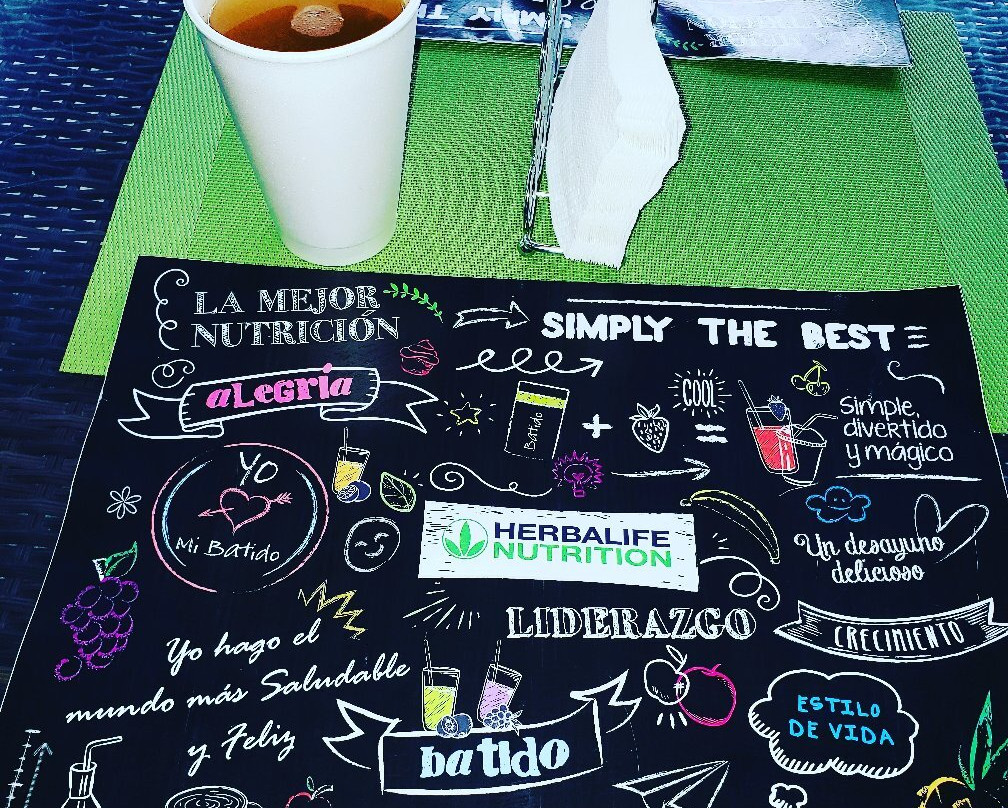 SIMPLY TH
LA MEJOR
NUTRICIÓN
SIMPLY THE BEST
aLegría
Batido
+
COOL
=
Simple,
divertido
y mágico
YO
Mi Batido
HERBALIFE
NUTRITION
Un desayuno
delicioso
LIDERAZGO
CRECIMIENTO
Yo hago el
mundo más Saludable
y Feliz
batido
ESTILO
DE VIDA